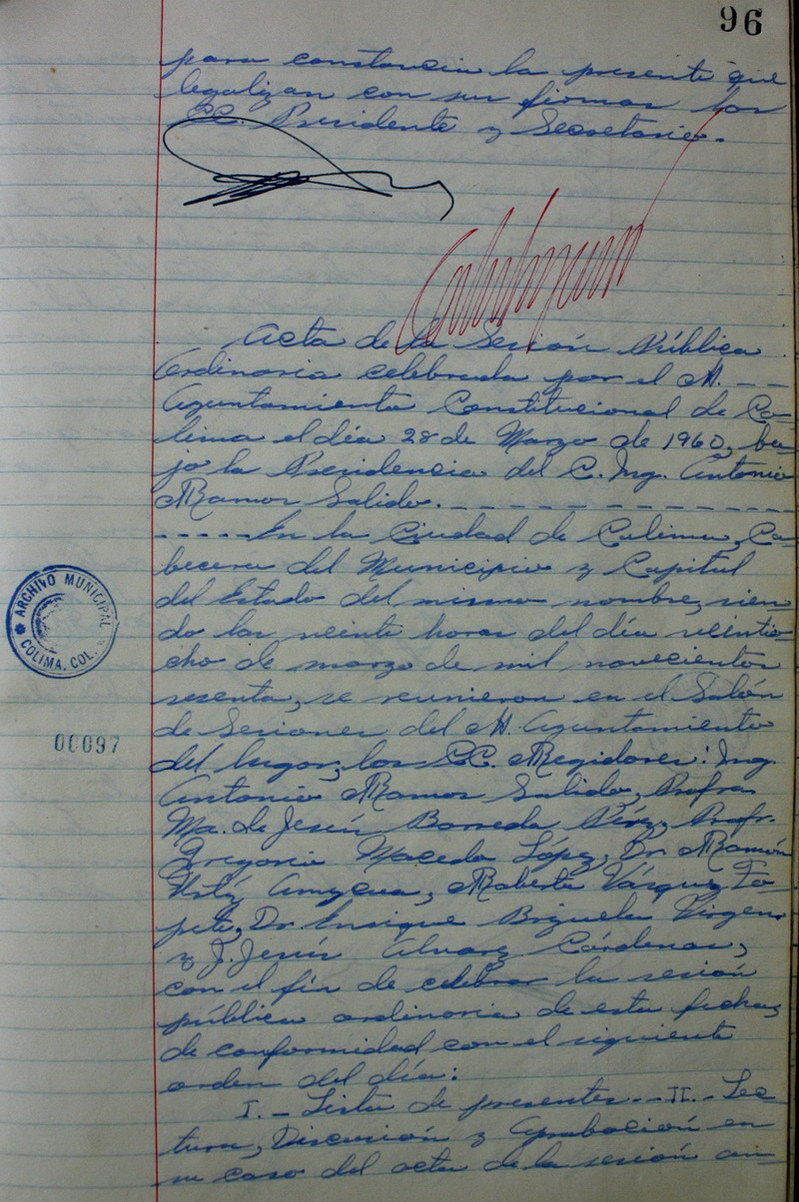 96
para constancia la presente que
legalizan con sus firmas los
CC. Presidente y Secretario.
Acta de la Sesión Pública
Ordinaria celebrada por el H. - -
Ayuntamiento Constitucional de Co-
lima el día 28 de Marzo de 1960, ba-
jo la Presidencia del C. Ing. Antonio
Ramos Salido. - - - - - - - - - - - -
- - - - - En la Ciudad de Colima, Ca-
becera del Municipio y Capital
del Estado del mismo nombre, sien
do las veinte horas del día veintio-
cho de marzo de mil novecientos
sesenta, se reunieron en el Salón
de Sesiones del H. Ayuntamiento
del lugar, los CC. Regidores: Ing.
Antonio Ramos Salido, Profra.
Ma. de Jesús Barreda Pérez, Profr.
Gregorio Macedo López, Dr. Ramón
Roberto Vázquez To-
pete, Dr. Enrique Brizuela Virgen
y J. Jesús Alvarez Cárdenas,
con el fin de celebrar la sesión
pública ordinaria de esta fecha,
de conformidad con el siguiente
orden del día:
I. - Lista de presentes. - II. - Lec
tura, Discusión y Aprobación en
su caso del acta de la sesión an-
ARCHIVO MUNICIPAL
COLIMA, COL.
00097